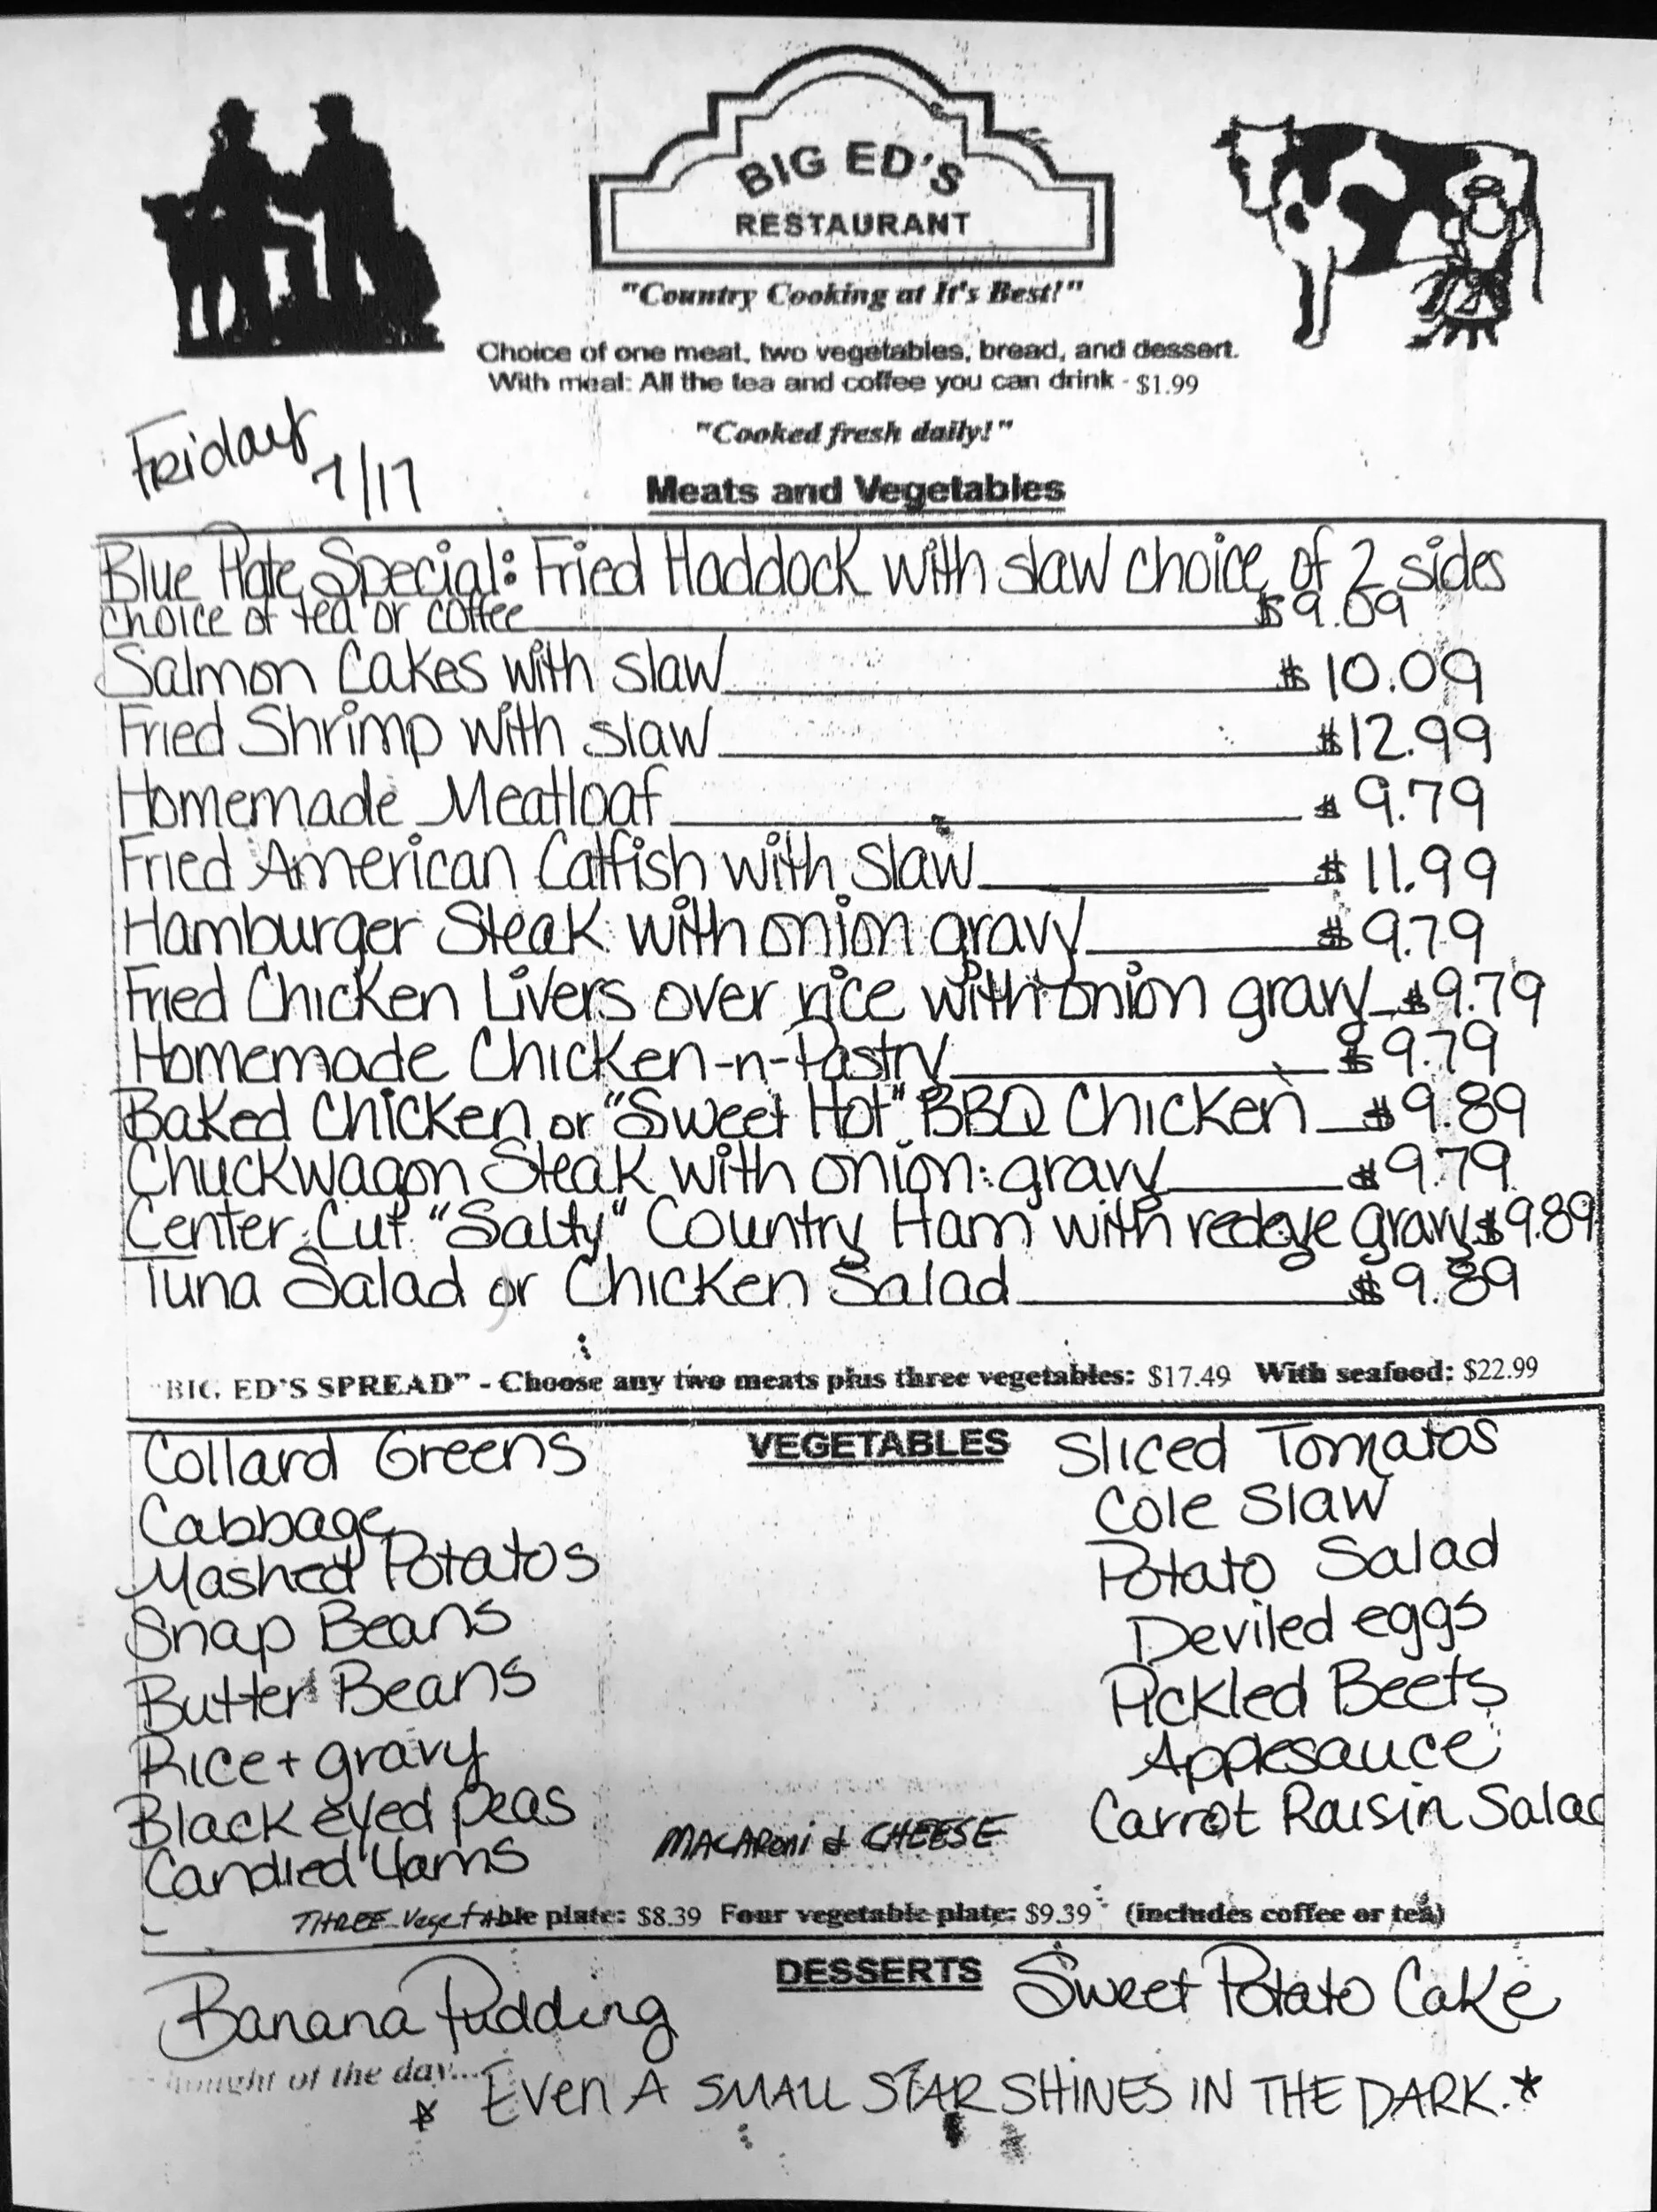 BIG ED'S
RESTAURANT
"Country Cooking at It's Best!"
Choice of one meat, two vegetables, bread, and dessert.
With meal: All the tea and coffee you can drink - $1.99
"Cooked fresh daily!"
Friday
7/17
Meats and Vegetables
Blue Plate Special: Fried Haddock with slaw choice of 2 sides
choice of tea or coffee $9.09
Salmon Cakes with slaw $10.09
Fried Shrimp with slaw $12.99
Homemade Meatloaf $9.79
Fried American Catfish with slaw $11.99
Hamburger Steak with onion gravy $9.79
Fried Chicken Livers over rice with onion gravy $9.79
Homemade Chicken-n-Pastry $9.79
Baked Chicken or "Sweet Hot" BBQ Chicken $9.89
Chuckwagon Steak with onion gravy $9.79
Center Cut "Salty" Country Ham with redeye gravy $9.89
Tuna Salad or Chicken Salad $9.89
"BIG ED'S SPREAD" - Choose any two meats plus three vegetables: $17.49 With seafood: $22.99
VEGETABLES
Collard Greens
Cabbage
Mashed Potatos
Snap Beans
Butter Beans
Rice + gravy
Black eyed peas
Candied Yams
MACARONi & CHEESE
Sliced Tomatos
Cole Slaw
Potato Salad
Deviled eggs
Pickled Beets
Applesauce
Carrot Raisin Salad
THREE Vegetable plate: $8.39 Four vegetable plate: $9.39 (includes coffee or tea)
DESSERTS
Banana Pudding
Sweet Potato Cake
hought of the day...
* EVEN A SMALL STAR SHINES IN THE DARK.*